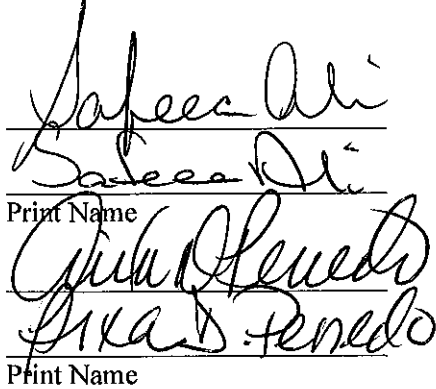 Safeea Ali
Safeea Ali
Print Name
D. Penedo
D. Penedo
Print Name